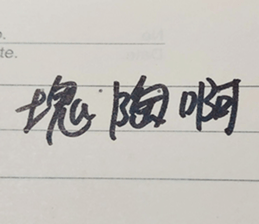 o.
te.
塊陶啊